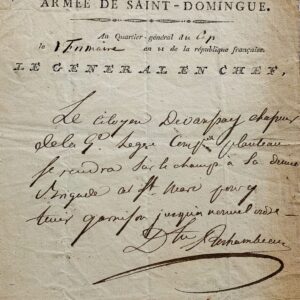 ARMÉE DE SAINT-DOMINGUE.
Au Quartier-général du Cap
le 1 frimaire an 12 de la république française.
LE GÉNÉRAL EN CHEF,
Le citoyen chasseur
de la Ge. Legere Compie.
se rendra sur le champ à la demie
Brigade a St Marc pour y
tenir garnison jusqu'a nouvel ordre
Dtn Rochambeau